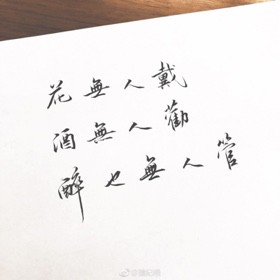 花無人戴
酒無人勸
醉也無人管